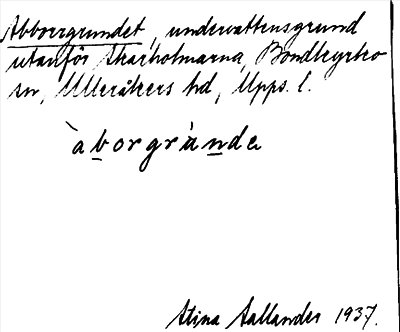 Abborrgrundet, undervattensgrund
utanför Skarholmarna, Bondkyrko
sn, Ulleråkers hd, Upps. l.
`aborgrùnde
Stina Sallander 1937.